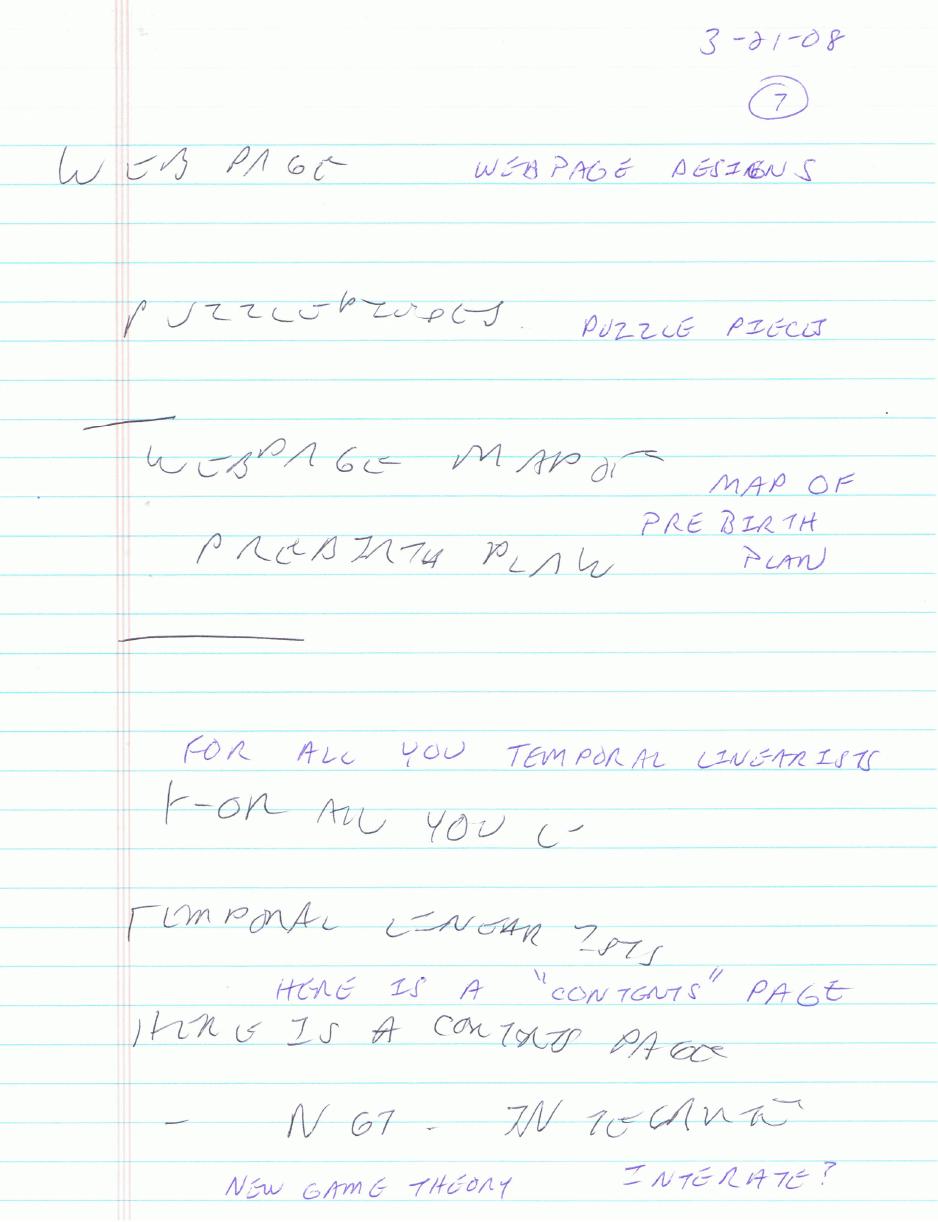 3-21-08
7
WEB PAGE WEBPAGE DESIGNS
PUZZLE PIECES PUZZLE PIECES
WEBPAGE MAP OF
MAP OF
PREBIRTH PLAN PRE BIRTH
PLAN
FOR ALL YOU TEMPORAL LINEARISTS
FOR ALL YOU
TEMPORAL LINEAR ISTS
HERE IS A "CONTENTS" PAGE
HERE IS A CONTENTS PAGE
- NGT -
NEW GAME THEORY INTERATE?